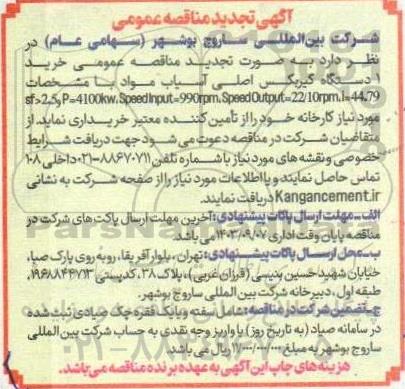 آگهی تجدید مناقصه عمومی
شرکت بین‌المللی ساروج بوشهر (سهامی عام) در
نظر دارد به صورت تجدید مناقصه عمومی خرید
۱ دستگاه گیربکس اصلی آسیاب مواد با مشخصات
sf>2.5و P=4100kw، Speed Input=990rpm، Speed Output=22/10rpm، I=44.79
مورد نیاز کارخانه خود را از تأمین کننده معتبر خریداری نماید. از
متقاضیان شرکت در مناقصه دعوت می شود جهت دریافت شرایط
خصوصی و نقشه های مورد نیاز با شماره تلفن ۸۸۶۷۰۷۱۱-۰۲۱ داخلی ۱۰۸
تماس حاصل نمایند و یا اطلاعات مورد نیاز را از صفحه شرکت به نشانی
Kangancement.ir دریافت نمایند.
الف-مهلت ارسال پاکات پیشنهادی: آخرین مهلت ارسال پاکت‌های شرکت در
مناقصه پایان وقت اداری ۱۴۰۳/۰۹/۰۷ می باشد.
ب-محل ارسال پاکات پیشنهادی: تهران، بلوار آفریقا، روبه روی پارک صبا،
خیابان شهید حسین بدیسی (فرزان غربی)، پلاک ۳۸، کدپستی ۱۹۶۸۸۴۴۷۱۳،
طبقه اول، دبیرخانه شرکت بین المللی ساروج بوشهر.
ج-تضمین شرکت در مناقصه: شامل سفته و یا یک فقره چک صیادی ثبت شده
در سامانه صیاد (به تاریخ روز) یا واریز وجه نقدی به حساب شرکت بین المللی
ساروج بوشهر به مبلغ ۱۷/۰۰۰/۰۰۰/۰۰۰ ریال می باشد.
هزینه های چاپ این آگهی به عهده برنده مناقصه می باشد.